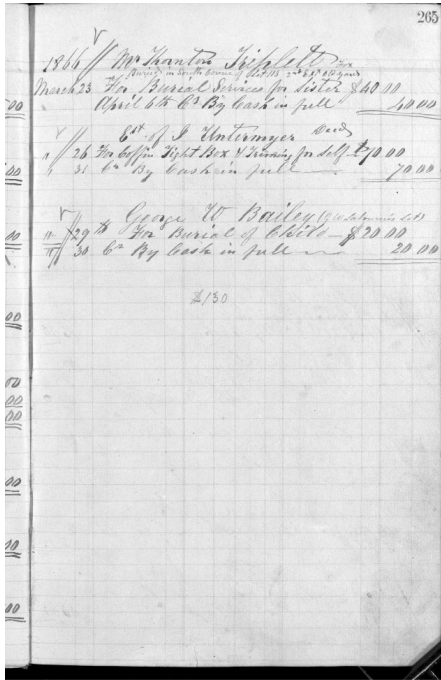 265
1866 // Mr Thornton Triplett
Buried in South corner of Lot 115 2nd
March 23 For Burial Services for Sister $40.00
April 6th Cr By Cash in full 40.00
Est of I Untermyer Decd
" 26 For Coffin Tight Box & Trimming for self $70.00
" 31 Cr By Cash in full 70.00
George W Bailey
" 29th For Burial of Child $20.00
" 30 Cr By Cash in full 20.00
$130
00
00
00
00
00
00
00
00
00
00